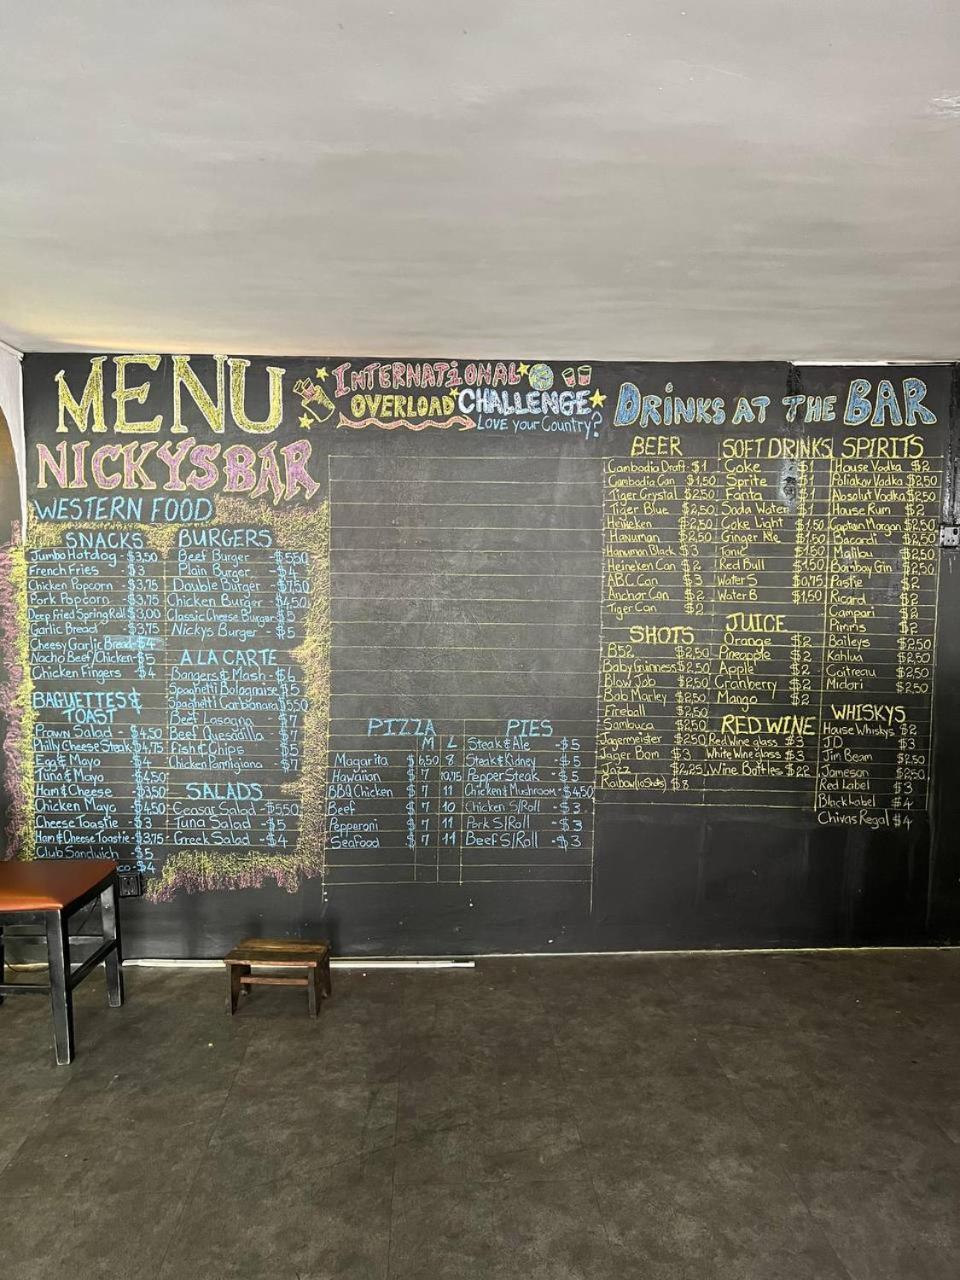 MENU
NICKYS BAR
WESTERN FOOD
SNACKS
Jumbo Hotdog - $3,50
French Fries - $3
Chicken Popcorn - $3,75
Pork Popcorn - $3,75
Deep Fried Spring Roll $3,00
Garlic Bread - $3,75
Cheesy Garlic Bread - $4
Nacho Beef/Chicken - $5
Chicken Fingers - $4
BAGUETTES &
TOAST
Prawn Salad - $4,50
Philly Cheese Steak $4,75
Egg & Mayo - $4
Tuna & Mayo - $4,50
Ham & Cheese $3,50
Chicken Mayo - $4,50
Cheese Toastie - $3
Ham & Cheese Toastie - $3,75
Club Sandwich - $5
co - $4
BURGERS
Beef Burger - $5,50
Plain Burger - $4
Double Burger - $7,50
Chicken Burger - $4,50
Classic Cheese Burger $5
Nickys Burger - $5
A LA CARTE
Bangers & Mash - $6
Spaghetti Bolognaise $5
Spaghetti Carbonara $5,50
Beef Lasagna - $7
Beef Quesadilla - $7
Fish & Chips - $5
Chicken Parmigiana - $7
SALADS
Ceasar Salad - $5,50
Tuna Salad - $5
Greek Salad - $4
INTERNATIONAL
OVERLOAD CHALLENGE
LOVE your Country?
PIZZA
M L
Magarita $ 6,50 8
Hawaiian $ 7 10,75
BBQ Chicken $ 7 11
Beef $ 7 10
Pepperoni $ 7 11
Seafood $ 7 11
PIES
Steak & Ale - $5
Steak & Kidney - $5
Pepper Steak - $5
Chicken & Mushroom - $4,50
Chicken S/Roll - $3
Pork S/Roll - $3
Beef S/Roll - $3
DRINKS AT THE BAR
BEER
Cambodia Draft - $1
Cambodia Can $1,50
Tiger Crystal $2,50
Tiger Blue $2,50
Heineken $2,50
Hanuman $2,50
Hanuman Black $3
Heineken Can $2
ABC Can $3
Anchor Can $2
Tiger Can $2
SHOTS
B52 $2,50
Baby Guinness $2,50
Blow Job $2,50
Bob Marley $2,50
Fireball $2,50
Sambuca $2,50
Jagermeister $2,50
Jager Bom $3
$2,25
Raibow (10 Shots) $8
SOFT DRINKS
Coke $1
Sprite $1
Fanta $1
Soda Water $1
Coke Light $1,50
Ginger Ale $1,50
Tonic $1,50
Red Bull $1,50
Water S $0,75
Water B $1,50
JUICE
Orange $2
Pineapple $2
Apple $2
Cranberry $2
Mango $2
RED WINE
Red Wine glass $3
White Wine glass $3
Wine Bottles $22
SPIRITS
House Vodka $2
Poliakov Vodka $2,50
Absolut Vodka $2,50
House Rum $2
Captain Morgan $2,50
Bacardi $2,50
Malibu $2,50
Bombay Gin $2,50
Pastie $2
Ricard $2
Campari $2
Pimms $2
Baileys $2,50
Kahlua $2,50
Coitreau $2,50
Midori $2,50
WHISKYS
House Whiskys $2
JD $3
Jim Beam $2,50
Jameson $2,50
Red Label $3
Black Label $4
Chivas Regal $4